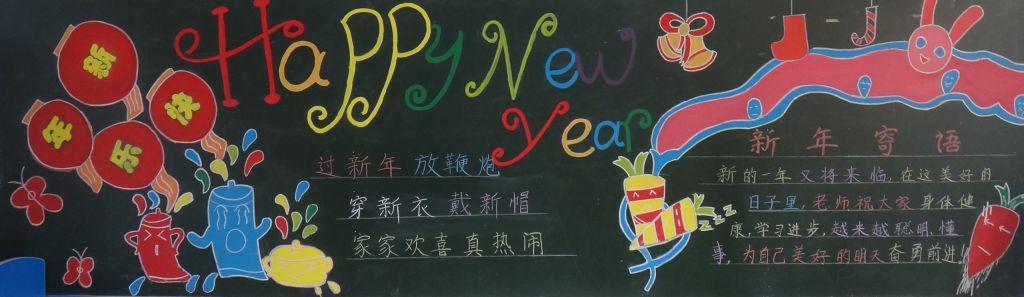 新年快乐
Happy New
Year
过新年 放鞭炮
穿新衣 戴新帽
家家欢喜真热闹
新年寄语
新的一年又将来临,在这美好的
日子里,老师祝大家身体健
康,学习进步,越来越聪明,懂
事,为自己美好的明天奋勇前进!
zzz